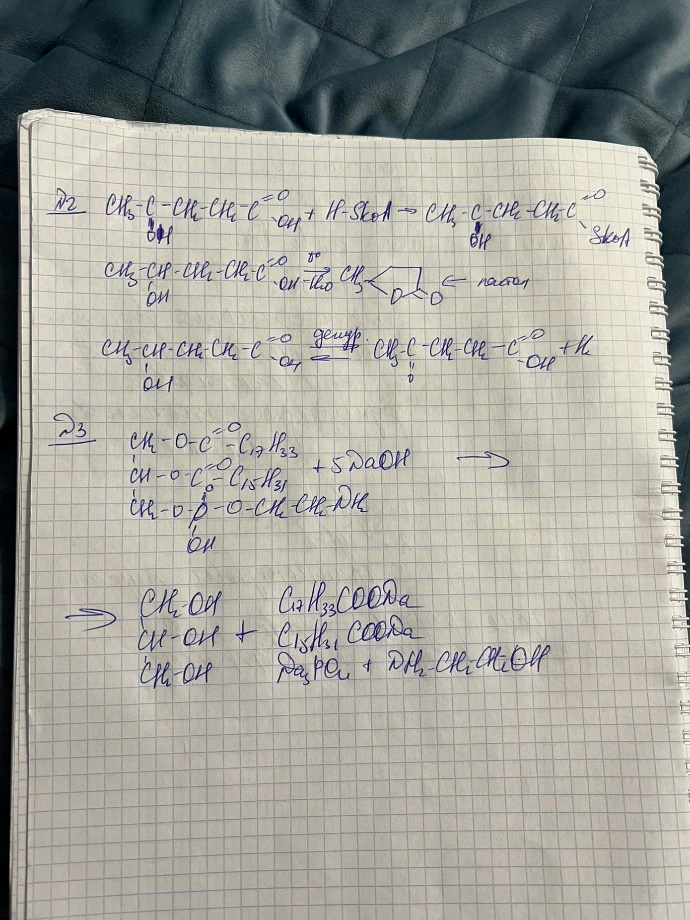 №2 CH₃-C-CH₂-CH₂-C=O -OH + H-SKoA → CH₃-C-CH₂-CH₂-C=O -SKoA
OH OH
CH₃-CH-CH₂-CH₂-C=O -OH t° → -H₂O CH₃ O O ← лактон
OH
CH₃-CH-CH₂-CH₂-C=O -OH дегидр. ⇄ CH₃-C-CH₂-CH₂-C=O -OH + H₂
OH O
№3 CH₂-O-C=O -C₁₇H₃₃
CH-O-C=O -C₁₅H₃₁ + 5NaOH →
O
CH₂-O-P-O-CH₂-CH₂-NH₂
OH
→ CH₂-OH C₁₇H₃₃COONa
CH-OH + C₁₅H₃₁COONa
CH₂-OH Na₃PO₄ + NH₂-CH₂-CH₂OH